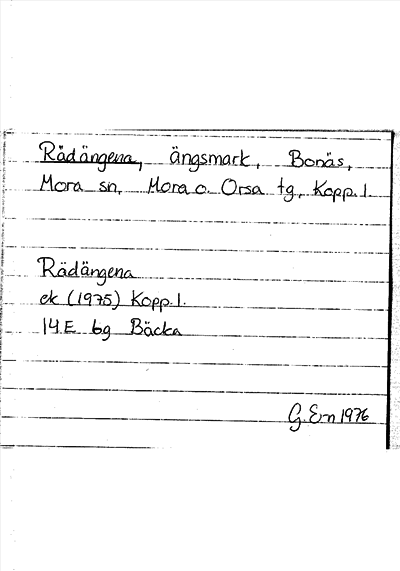 Rädängena, ängsmark, Bonäs,
Mora sn, Mora o. Orsa tg, Kopp. l.
Rädängena
ek (1975) Kopp. l.
14 E 6g Bäcka
G. E-n 1976